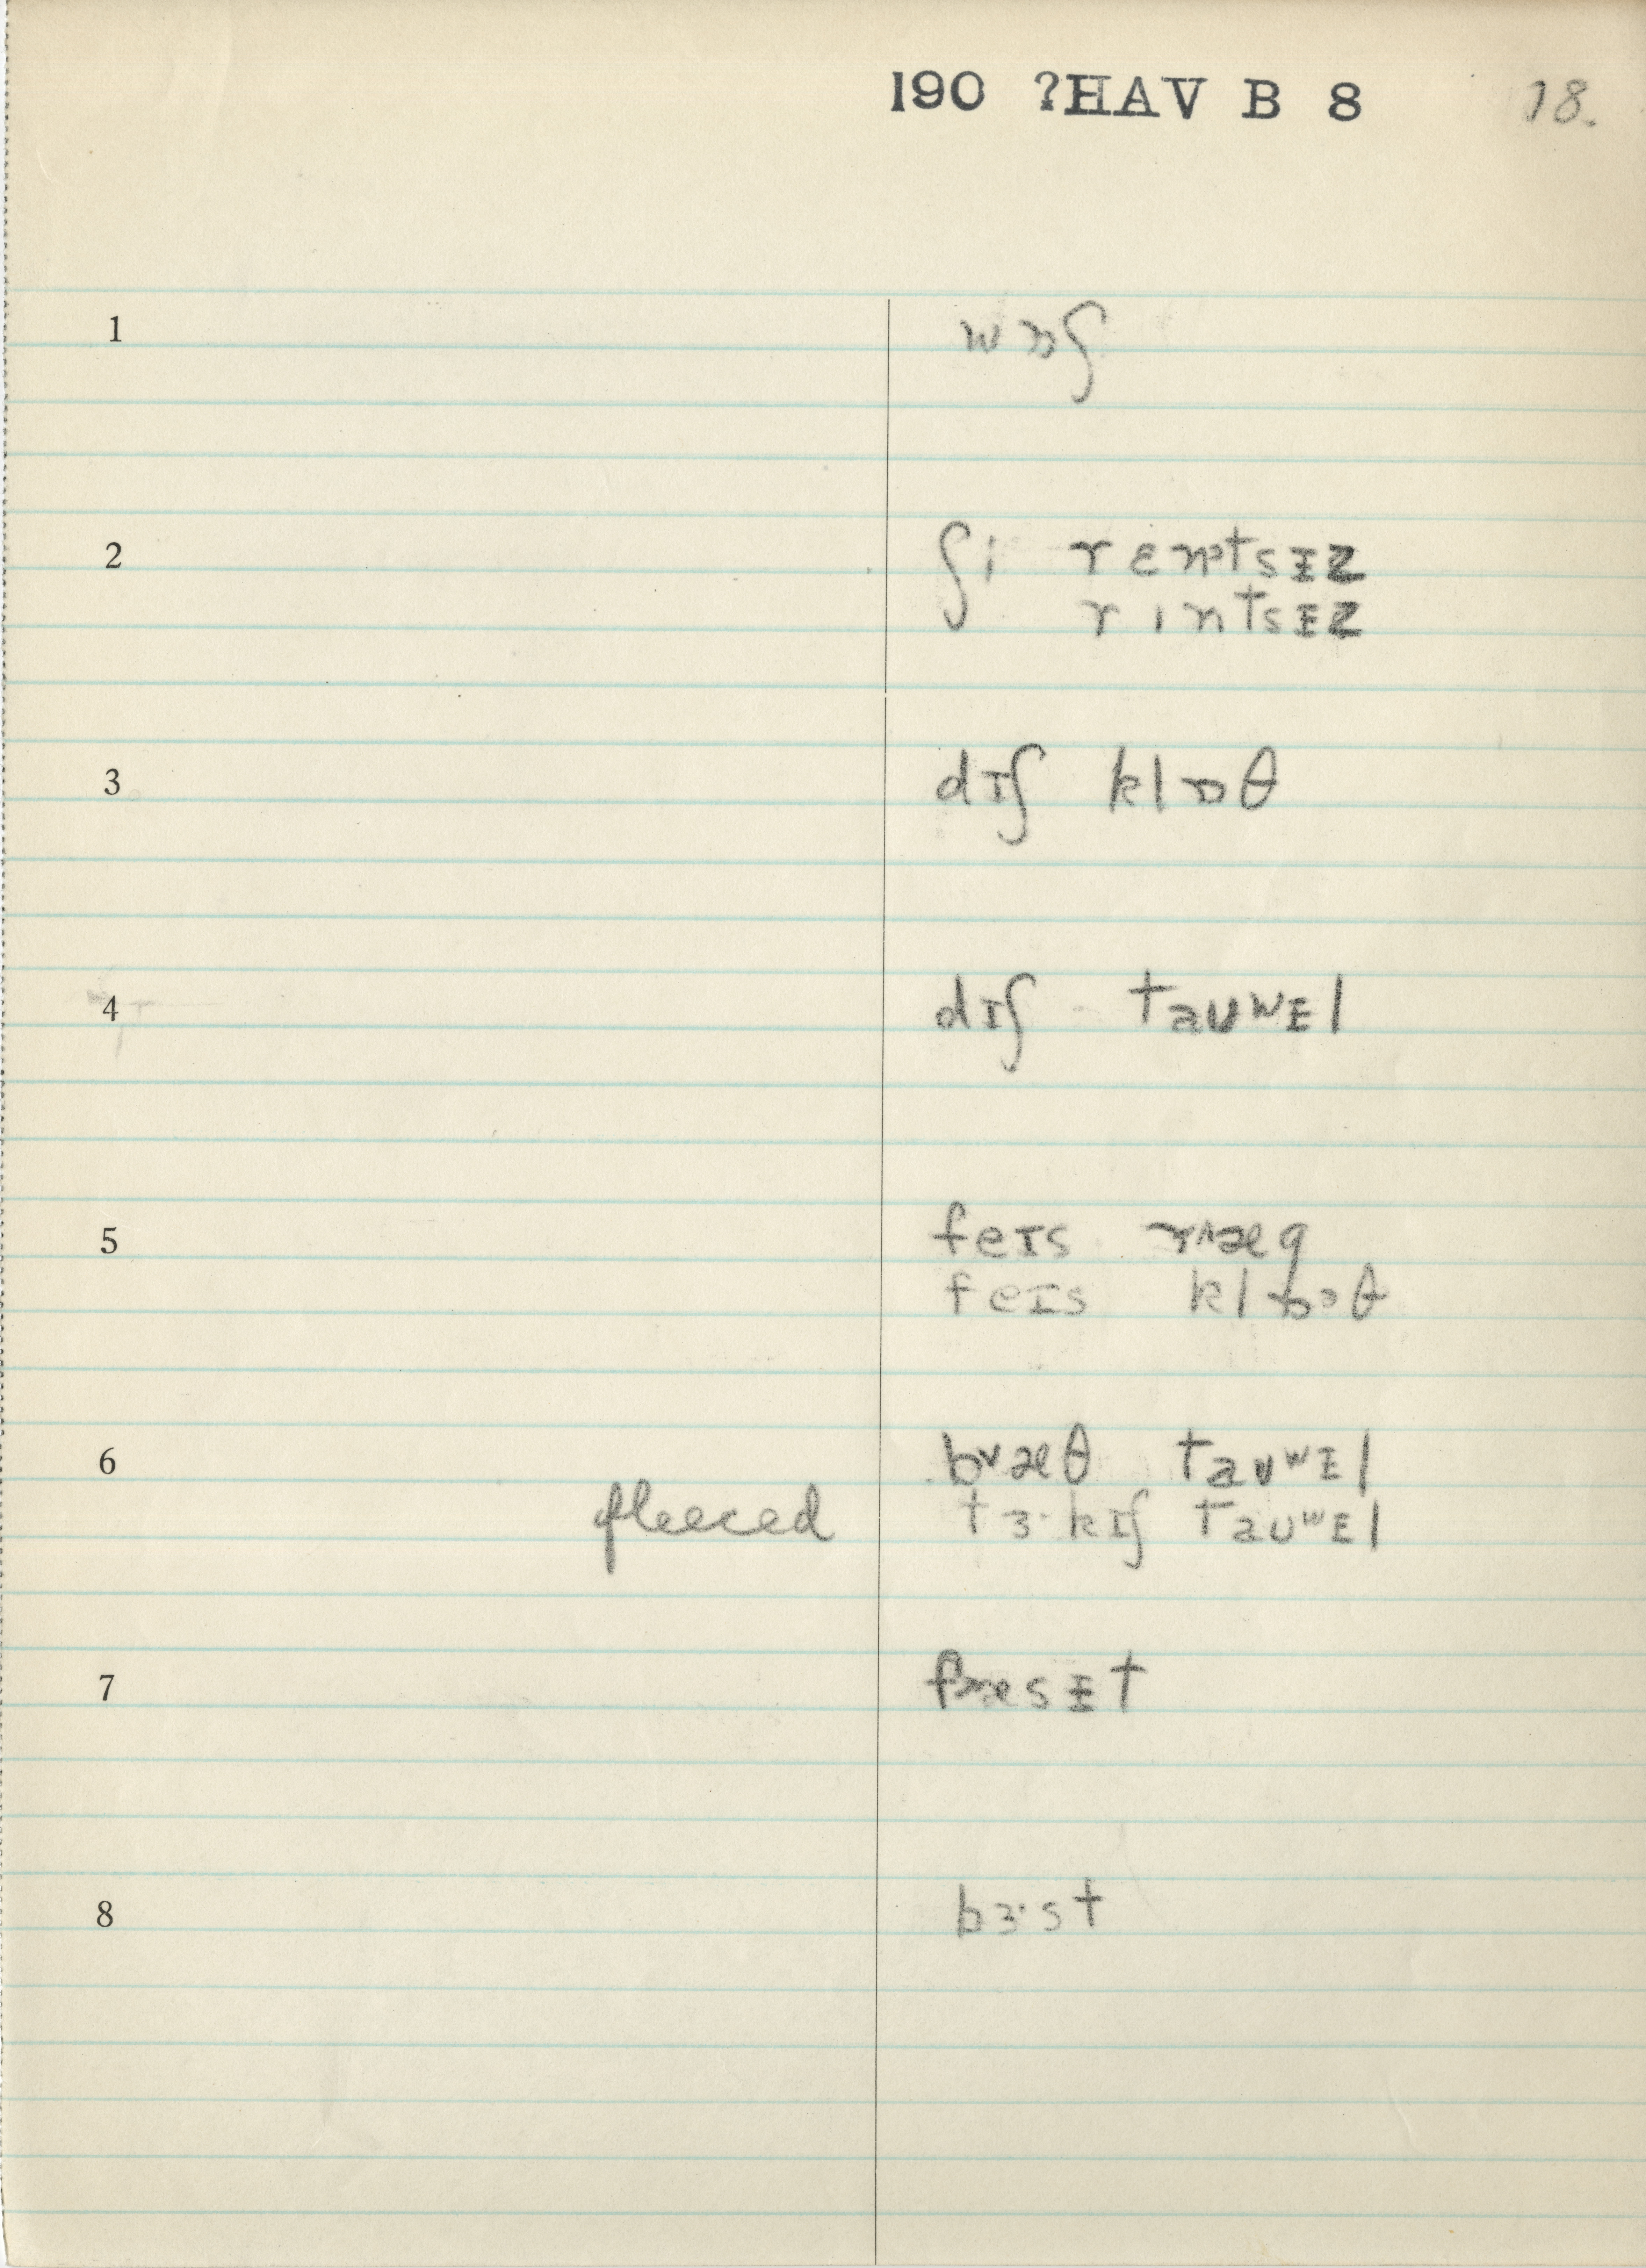 190 ?HAV B 8 18.
1 wɒʃ
2 ʃi rɛntsɨz
rintsɨz
3 dɪʃ klɒθ
4 dɪʃ taʊwɨl
5 feɪs ræg
feɪs klɒθ
6 bæθ taʊwɨl
fleeced tɜ·kɪʃ taʊwɨl
7 fɒsɨt
8 bɜ·st